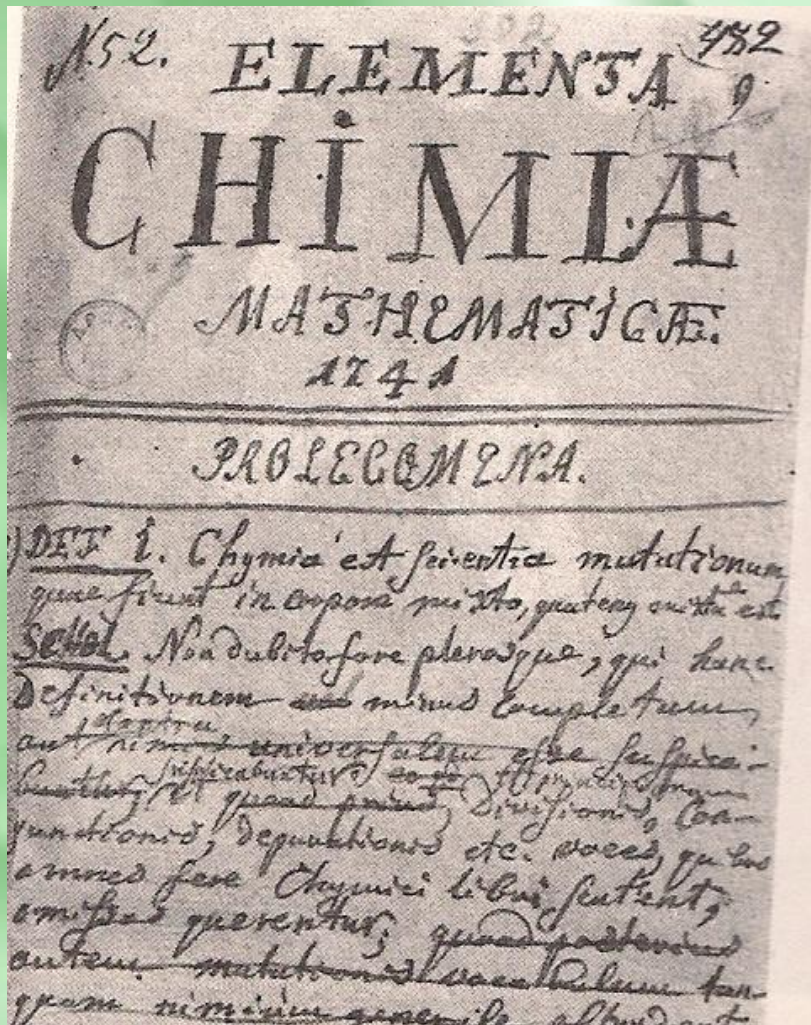 N. 52. 482
ELEMENTA 9
CHIMIÆ
MATHEMATICÆ.
1741
PROLEGOMENA.
DEF 1. Chymia est scientia mutationum
quae fiunt in corpore mixto, quatenus mixtum est
SCHOL. Non dubito fore plerosque, qui hanc
Definitionem minus completam,
aut nimis universalem esse suspica-
quoad prius, Divisionis, Con-
junctionis, depurationis etc. voces, quibus
omnes fere Chymici libri scatent,
omissas querentur; quoad posterius
autem mutationis vocabulum tan-
quam nimium generale